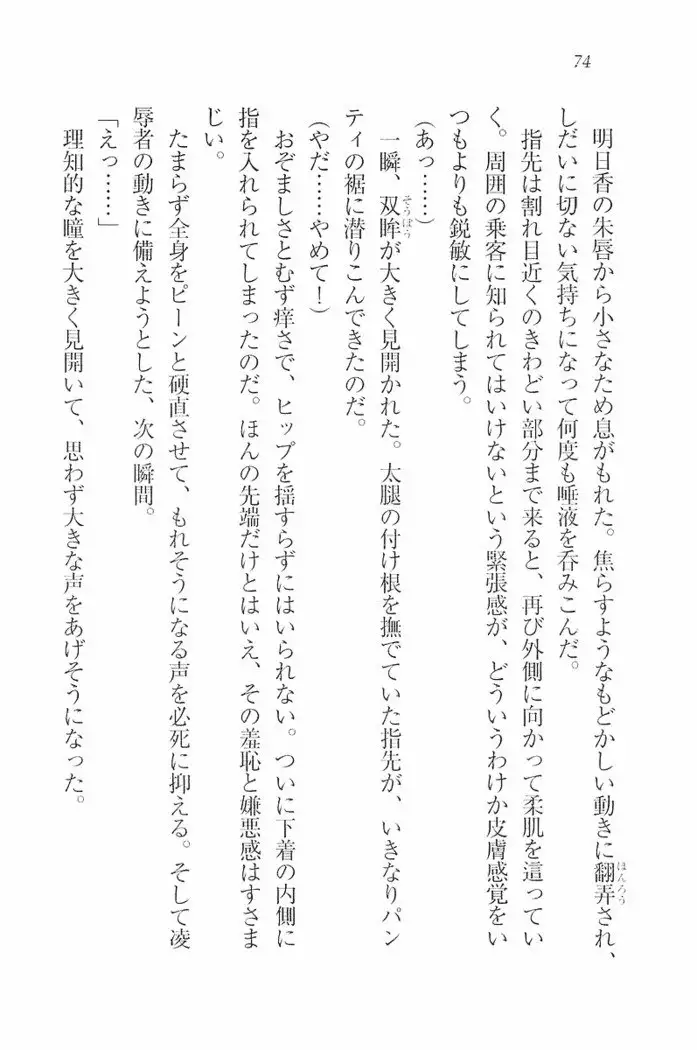 74
明日香の朱唇から小さなため息がもれた。焦らすようなもどかしい動きに翻弄され、
しだいに切ない気持ちになって何度も唾液を呑みこんだ。
指先は割れ目近くのきわどい部分まで来ると、再び外側に向かって柔肌を這ってい
く。周囲の乗客に知られてはいけないという緊張感が、どういうわけか皮膚感覚をい
つもよりも鋭敏にしてしまう。
(あっ……)
一瞬、双眸が大きく見開かれた。太腿の付け根を撫でていた指先が、いきなりパン
ティの裾に潜りこんできたのだ。
(やだ……やめて!)
おぞましさとむず痒さで、ヒップを揺すらずにはいられない。ついに下着の内側に
指を入れられてしまったのだ。ほんの先端だけとはいえ、その羞恥と嫌悪感はすさま
じい。
たまらず全身をピーンと硬直させて、もれそうになる声を必死に抑える。そして凌
辱者の動きに備えようとした、次の瞬間。
「えっ……」
理知的な瞳を大きく見開いて、思わず大きな声をあげそうになった。